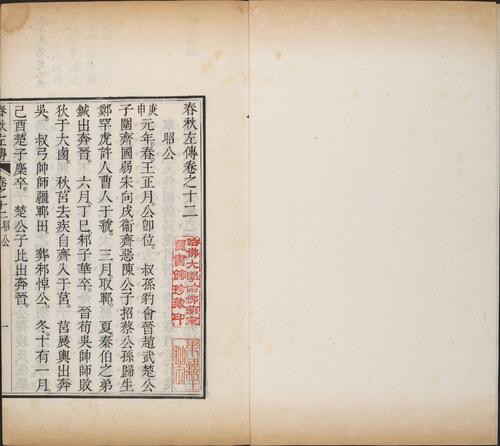 春秋左傳卷之十二
昭公
庚申元年春王正月。公卽位。 叔孫豹會晉趙武楚公
子圍齊國弱宋向戌衞齊惡陳公子招蔡公孫歸生
鄭罕虎許人曹人于虢。 三月。取鄆。 夏秦伯之弟
鍼出奔晉。 六月。丁巳邾子華卒。 晉荀吳帥師敗
狄于大鹵。 秋莒去疾自齊入于莒。 莒展輿出奔
吳。 叔弓帥師疆鄆田。 葬邾悼公。 冬。十有一月。
己酉楚子麇卒。 楚公子比出奔晉。
春秋左傳 卷之十二 昭公 一
哈佛大學哈佛燕京
圖書館珍藏印